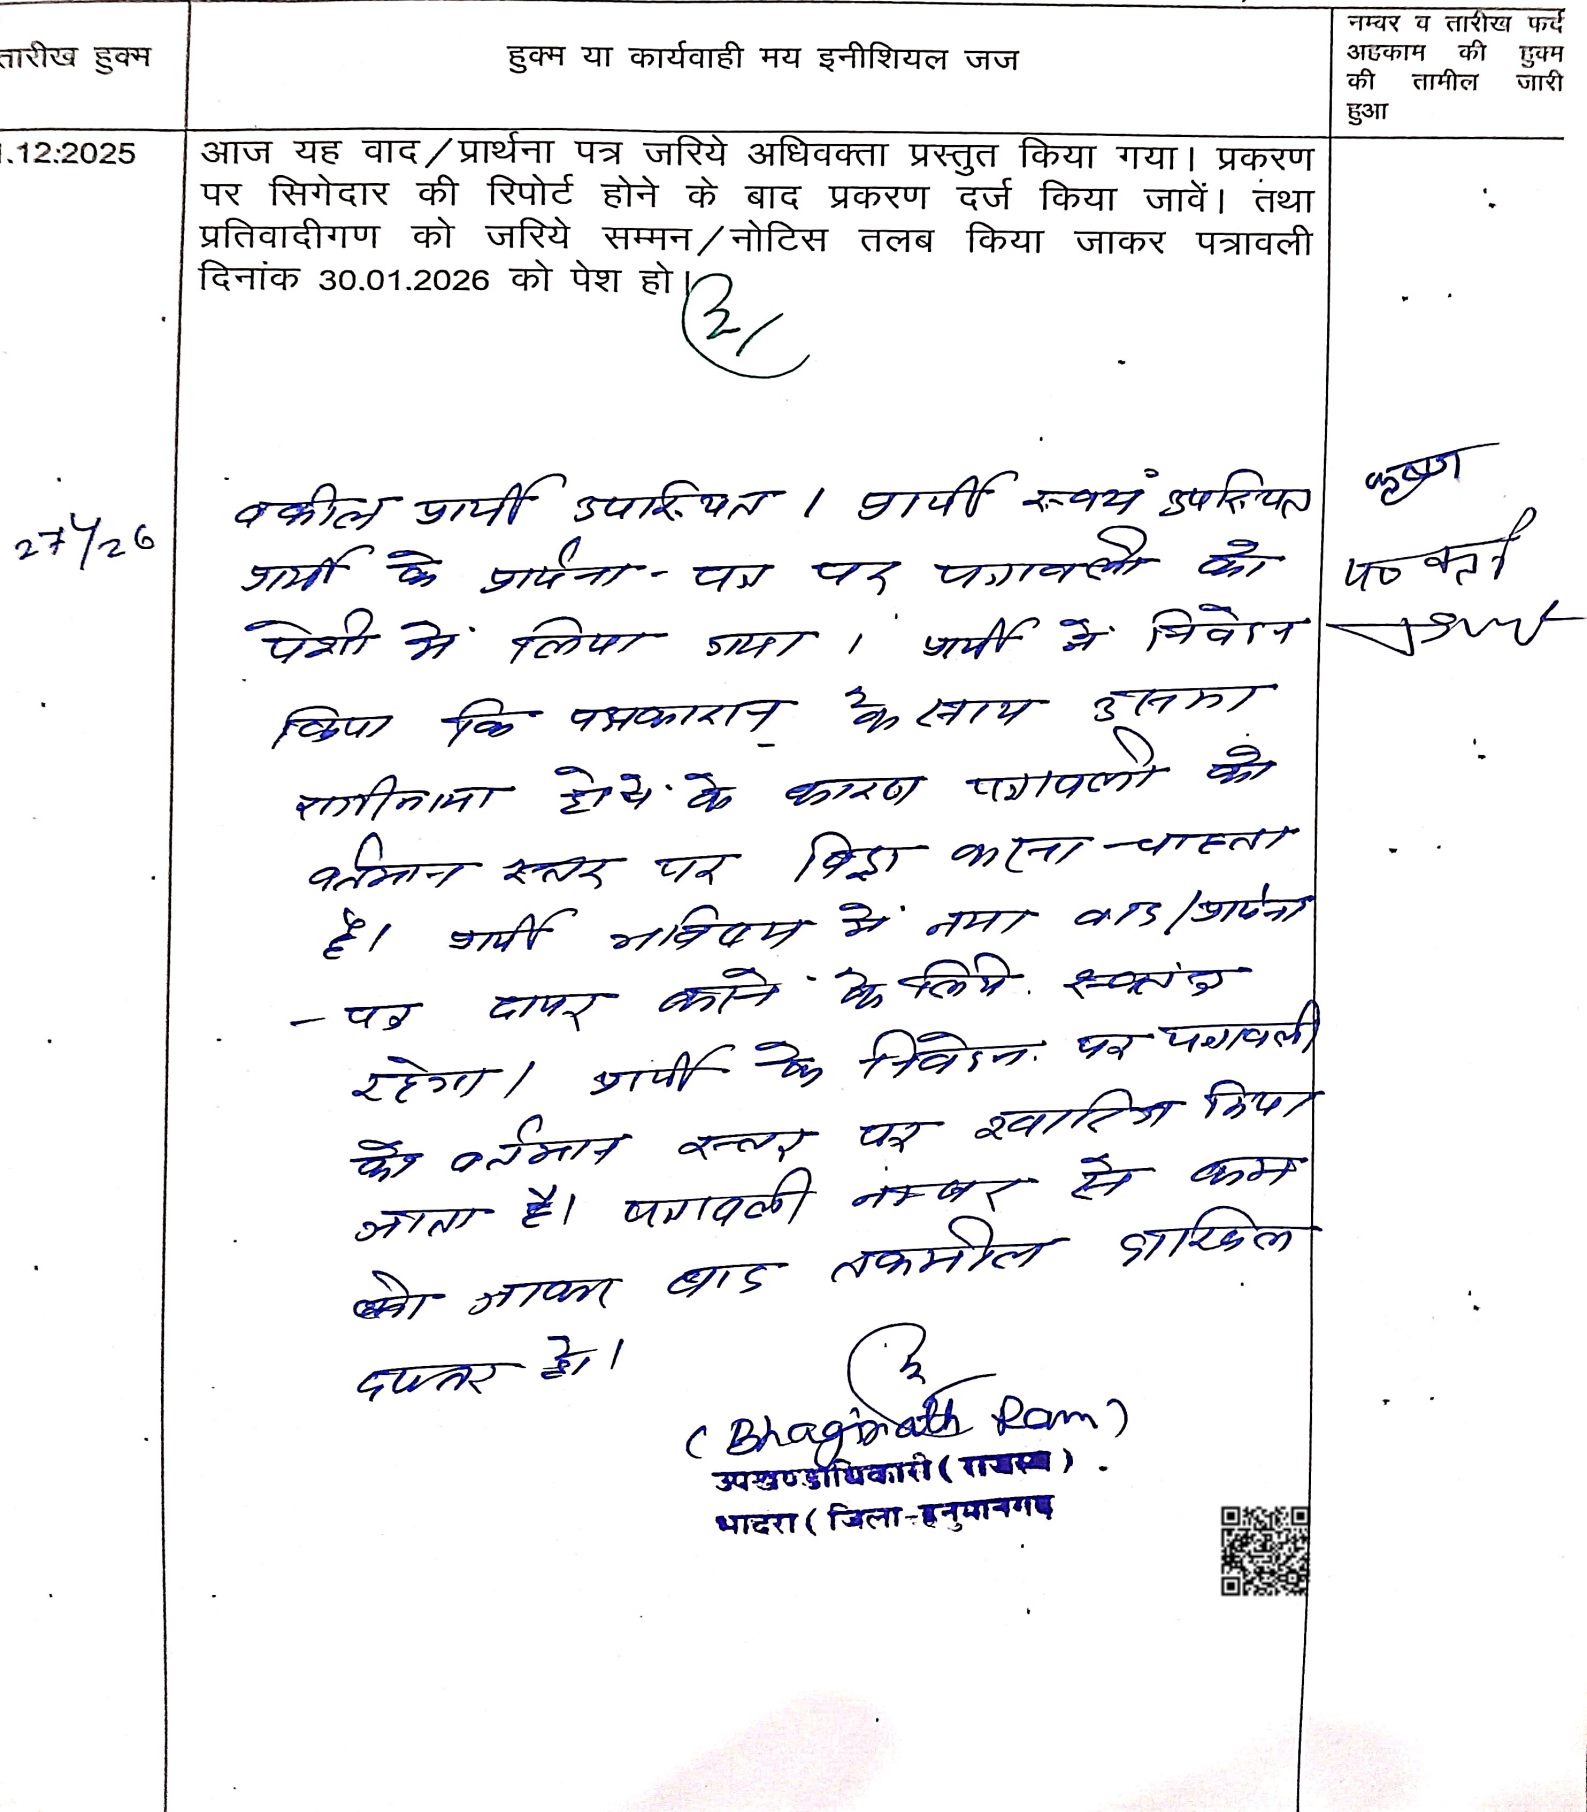 तारीख हुक्म
हुक्म या कार्यवाही मय इनीशियल जज
नम्बर व तारीख फर्द
अहकाम की हुक्म
की तामील जारी
हुआ
.12:2025
आज यह वाद/प्रार्थना पत्र जरिये अधिवक्ता प्रस्तुत किया गया। प्रकरण
पर सिगेदार की रिपोर्ट होने के बाद प्रकरण दर्ज किया जावें। तथा
प्रतिवादीगण को जरिये सम्मन/नोटिस तलब किया जाकर पत्रावली
दिनांक 30.01.2026 को पेश हो।
27/1/26
वकील प्रार्थी उपस्थित । प्रार्थी स्वयं उपस्थित
प्रार्थी के प्रार्थना-पत्र पर पत्रावली को
पेशी में लिया गया । प्रार्थी में निवेदन
किया कि पक्षकारान् के साथ उसका
राजीनामा होने के कारण पत्रावली को
वर्तमान स्तर पर विड्रा करना चाहता
है। प्रार्थी भविष्य में नया वाद/प्रार्थना
-पत्र दायर करने के लिये स्वतंत्र
रहेगा। प्रार्थी के निवेदन पर पत्रावली
को वर्तमान स्तर पर खारिज किया
जाता है। पत्रावली नम्बर से कम
हो जाकर बाद तकमील दाखिल
दफ्तर हो।
कृष्ण
(Bhaginath Ram)
उपखण्डाधिकारी (राजस्व)
भादरा (जिला-हनुमानगढ़